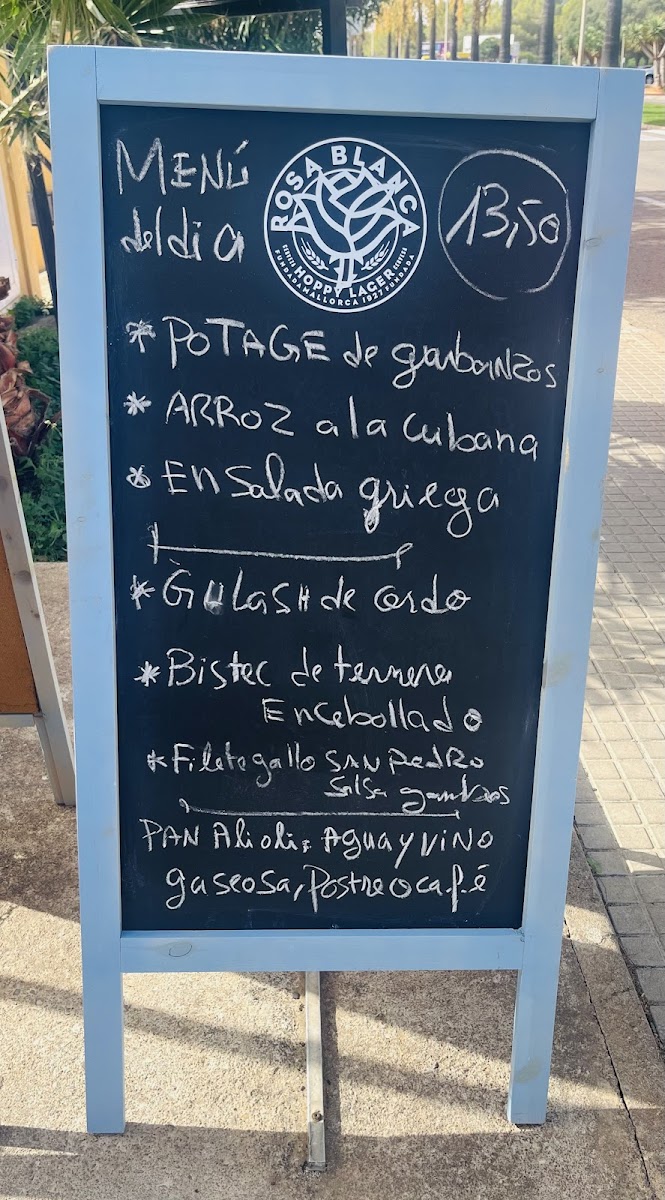 MENÚ
del dia
ROSA BLANCA
CERVEZA HOPPY LAGER CERVEZA
FUNDADA MALLORCA 1927 FUNDADA
13,50
* POTAGE de garbanzos
* ARROZ a la cubana
* Ensalada griega
* GULASH de cerdo
* Bistec de ternera
Encebollado
* Filete gallo SAN PedRO
Salsa gambas
PAN Alioli, Agua y Vino
gaseosa, Postre o café